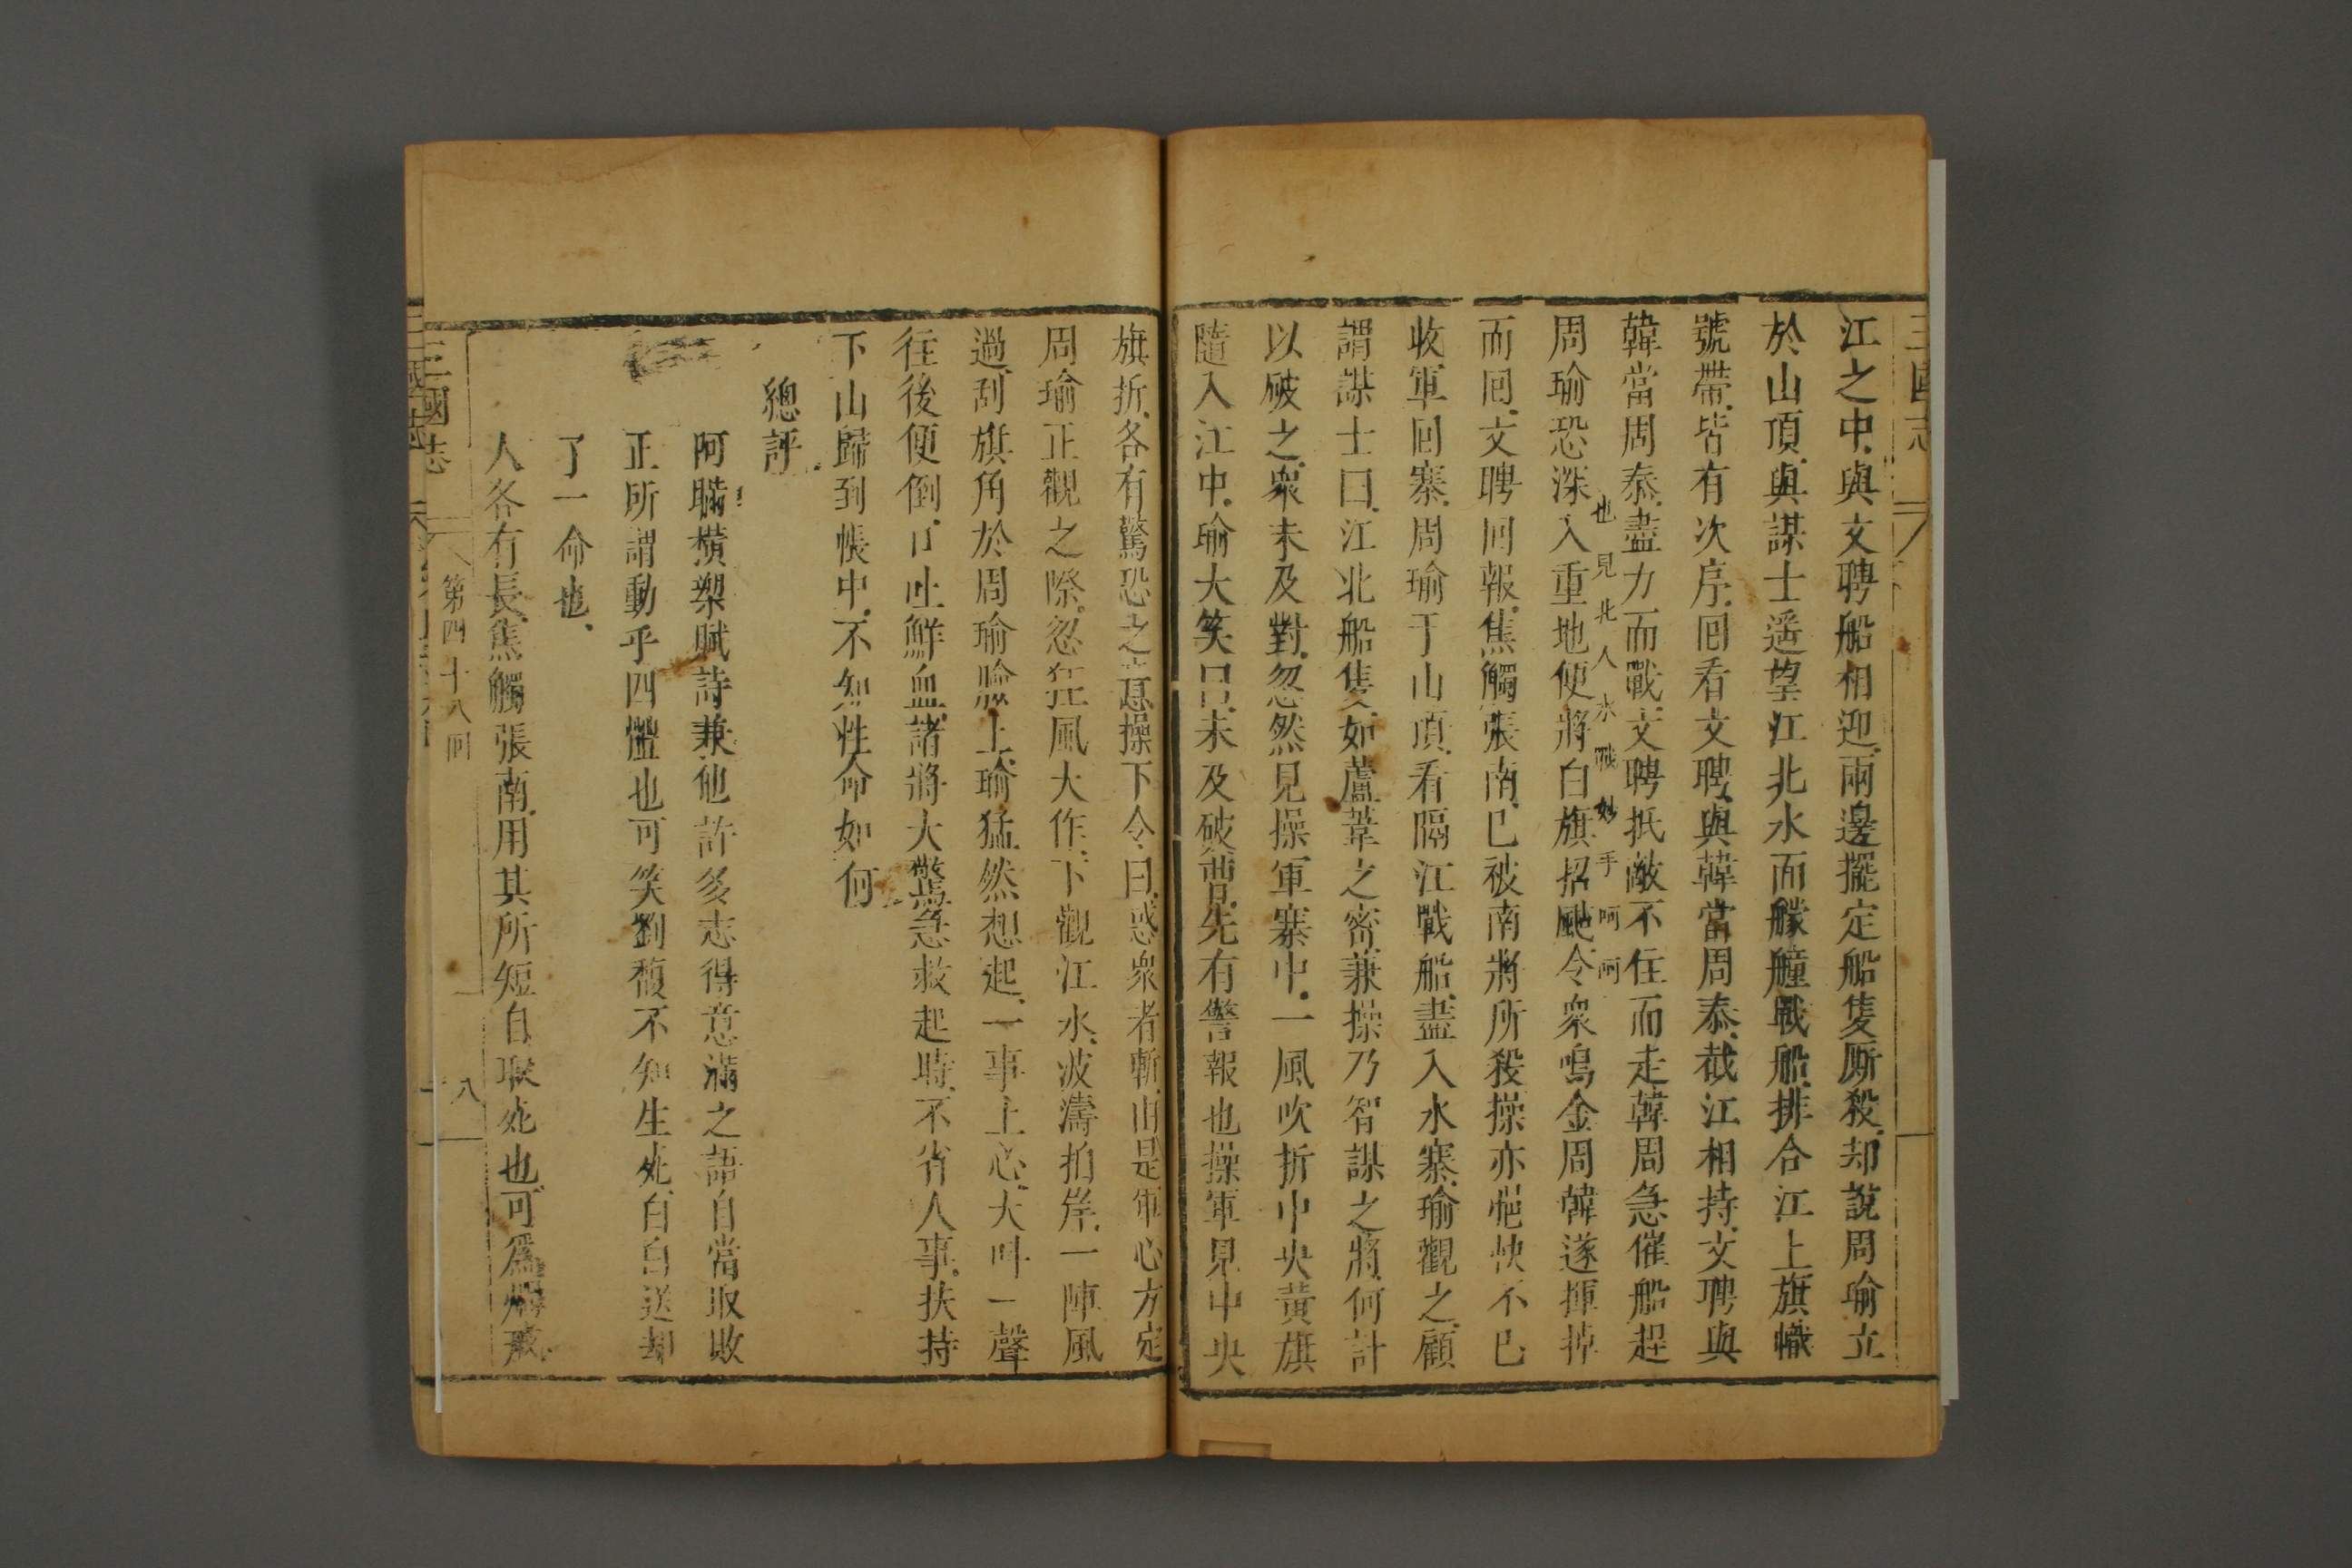 三國志
江之中與文聘船相迎兩邊擺定船隻厮殺却說周瑜立
於山頂與謀士遥望江北水面艨艟戰船排合江上旗幟
號帶皆有次序囘看文聘與韓當周泰截江相持文聘與
韓當周泰盡力而戰文聘抵敵不住而走韓周急催船趕
也見北人水戰妙手呵呵
周瑜恐深入重地便將白旗招颭令衆鳴金周韓遂揮掉
而囘文聘囘報焦觸張南已被南將所殺操亦悒怏不已
收軍囘寨周瑜于山頂看隔江戰船盡入水寨瑜觀之顧
謂謀士曰江北船隻如蘆葦之密兼操乃智謀之將何計
以破之衆未及對忽然見操軍寨中一風吹折中央黃旗
隨入江中瑜大笑曰未及破曹先有警報也操軍見中央
旗折各有驚恐之意操下令曰惑衆者斬由是軍心方定
周瑜正觀之際忽狂風大作下觀江水波濤拍岸一陣風
過刮旗角於周瑜臉上瑜猛然想起一事上心大叫一聲
往後便倒口吐鮮血諸將大驚急救起時不省人事扶持
下山歸到帳中不知性命如何
總評
阿瞞橫槊賦詩兼他許多志得意滿之語自當取敗
正所謂動乎四體也可笑劉馥不知生死白白送却
了一命也
人各有長焦觸張南用其所短自取死也可爲烱戒
三國志
第四十八囘
八